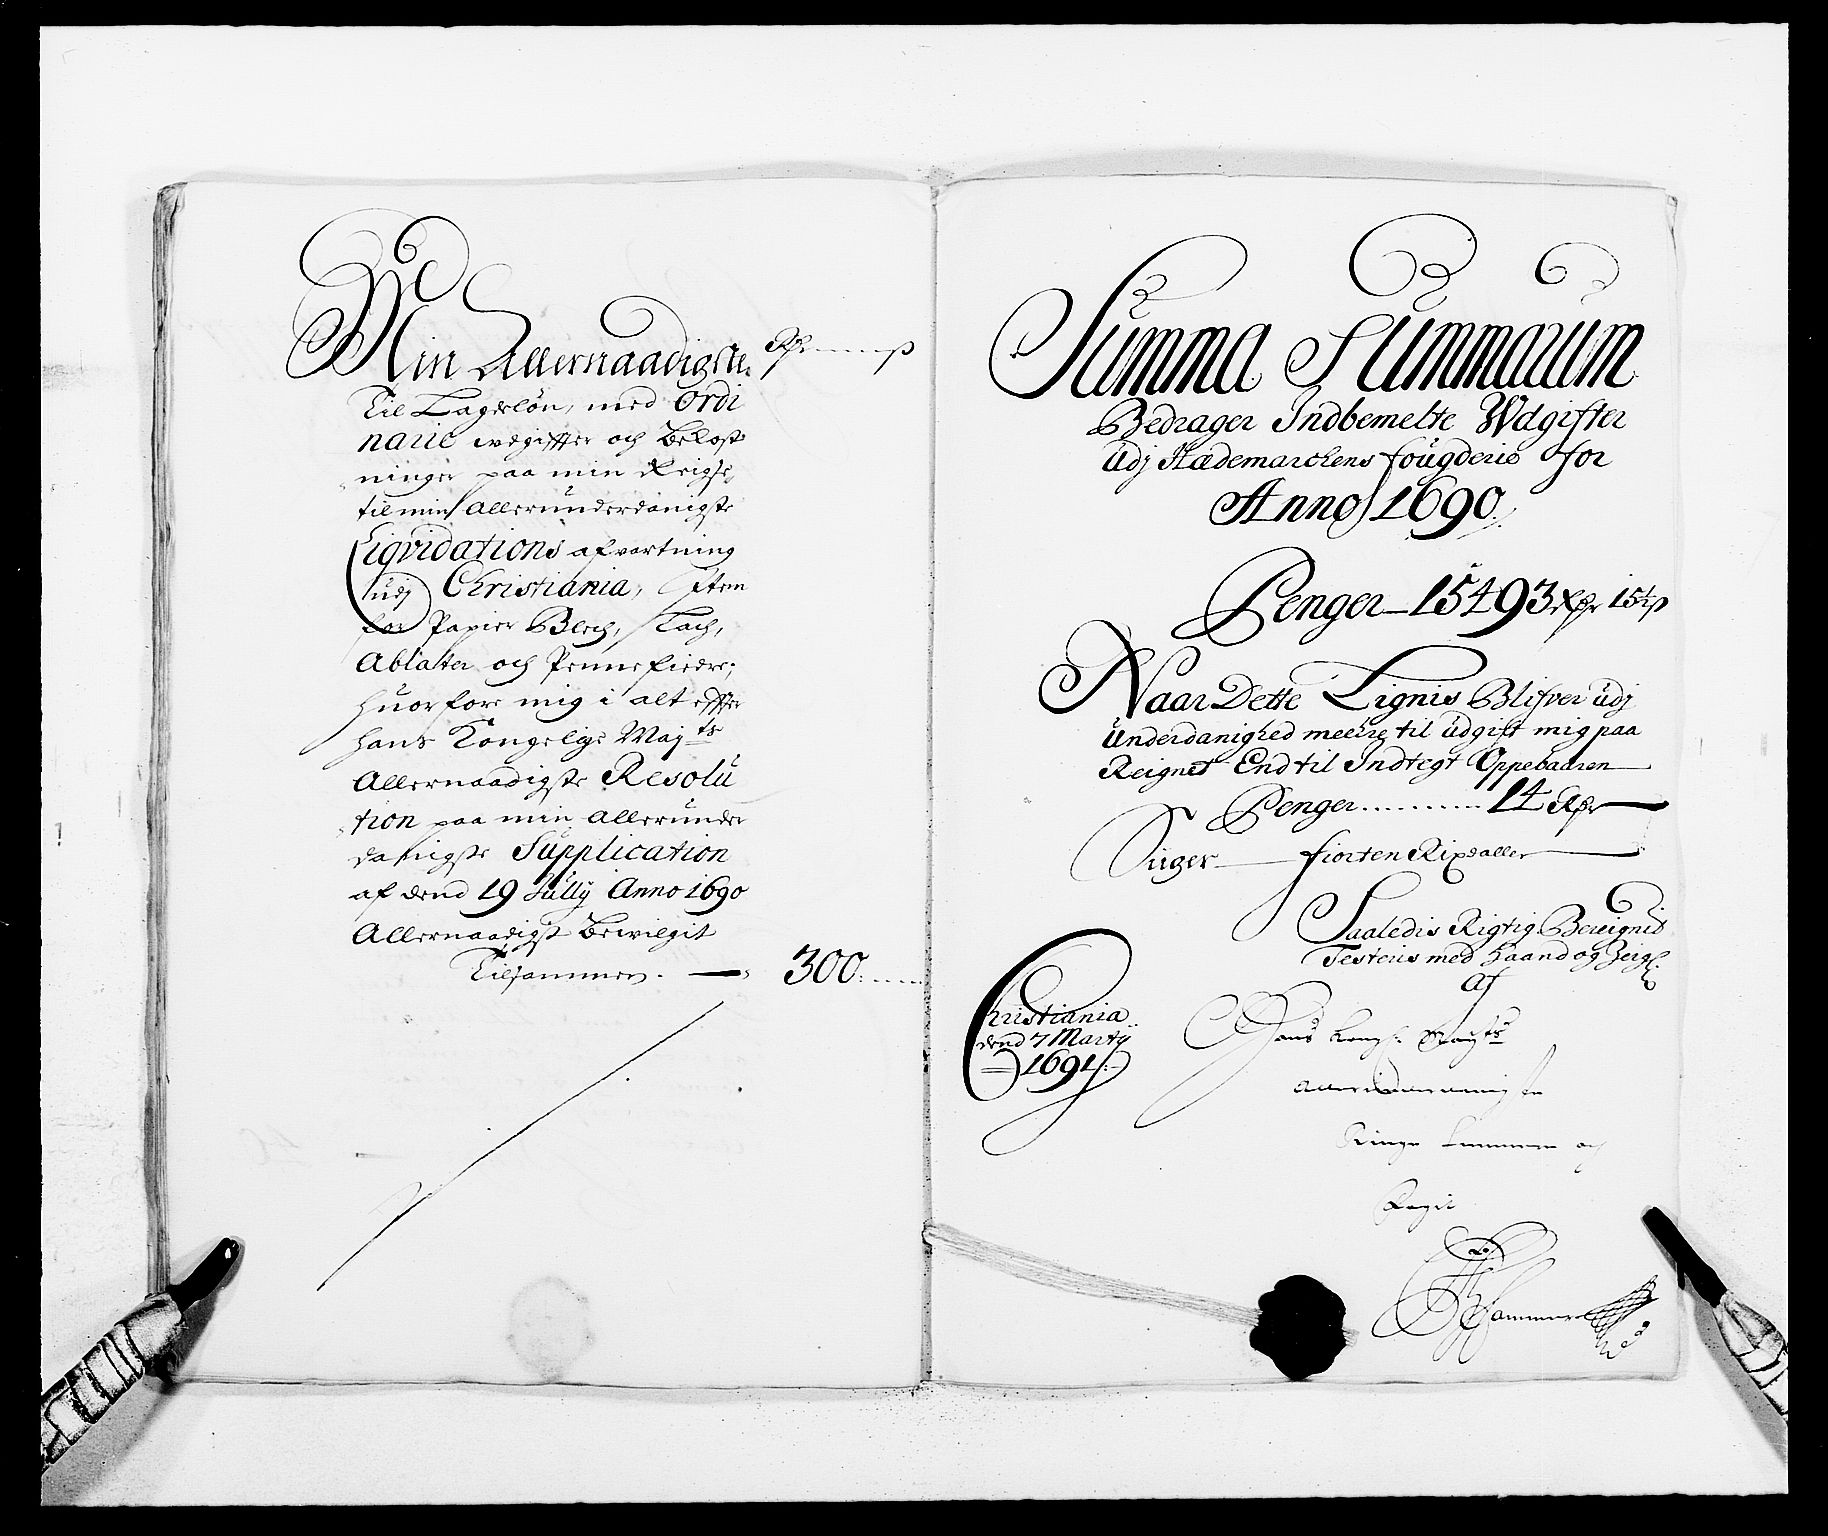 Min Allernaadigste Rdr ß
Til Lagerlön, med Ordi
narie udgiffter och Bekost
ninger paa min Reigse
til min Allerunderdanigste
Liqvidations afvartning
udj Christiania, Item
for Papier Blech, Lach,
Ablater och Pennefiedre;
huorfore mig i alt effter
Hans Kongelige Maj:ts
Allernaadigste Resolu
tion paa min Allerunder
danigste Supplication
af dend 19 Jullij Anno 1690
Allernaadigst Bevilgit
Tilsammen. — 300
Summa Summarum
Bedrager Indbemelte Udgifter
udj Hædemarchens fougderie for
Anno 1690
Penger 15493 Rdr 15½ ß
Naar Dette Lignis Blifver udj
Underdanighed meere til udgift mig paa
Reignet End til Indtegt Oppebaaren
Penger 14 Rdr
Siiger fiorten Rixdaller
Saaledis Rigtig Bereignid
Testeris med Haand og Zeigl.
Af
Christiania
dend 7 Martij
1691
Hans Kongl: Mayts
allerunderdanigste
Ringe Tienner och
Fogit